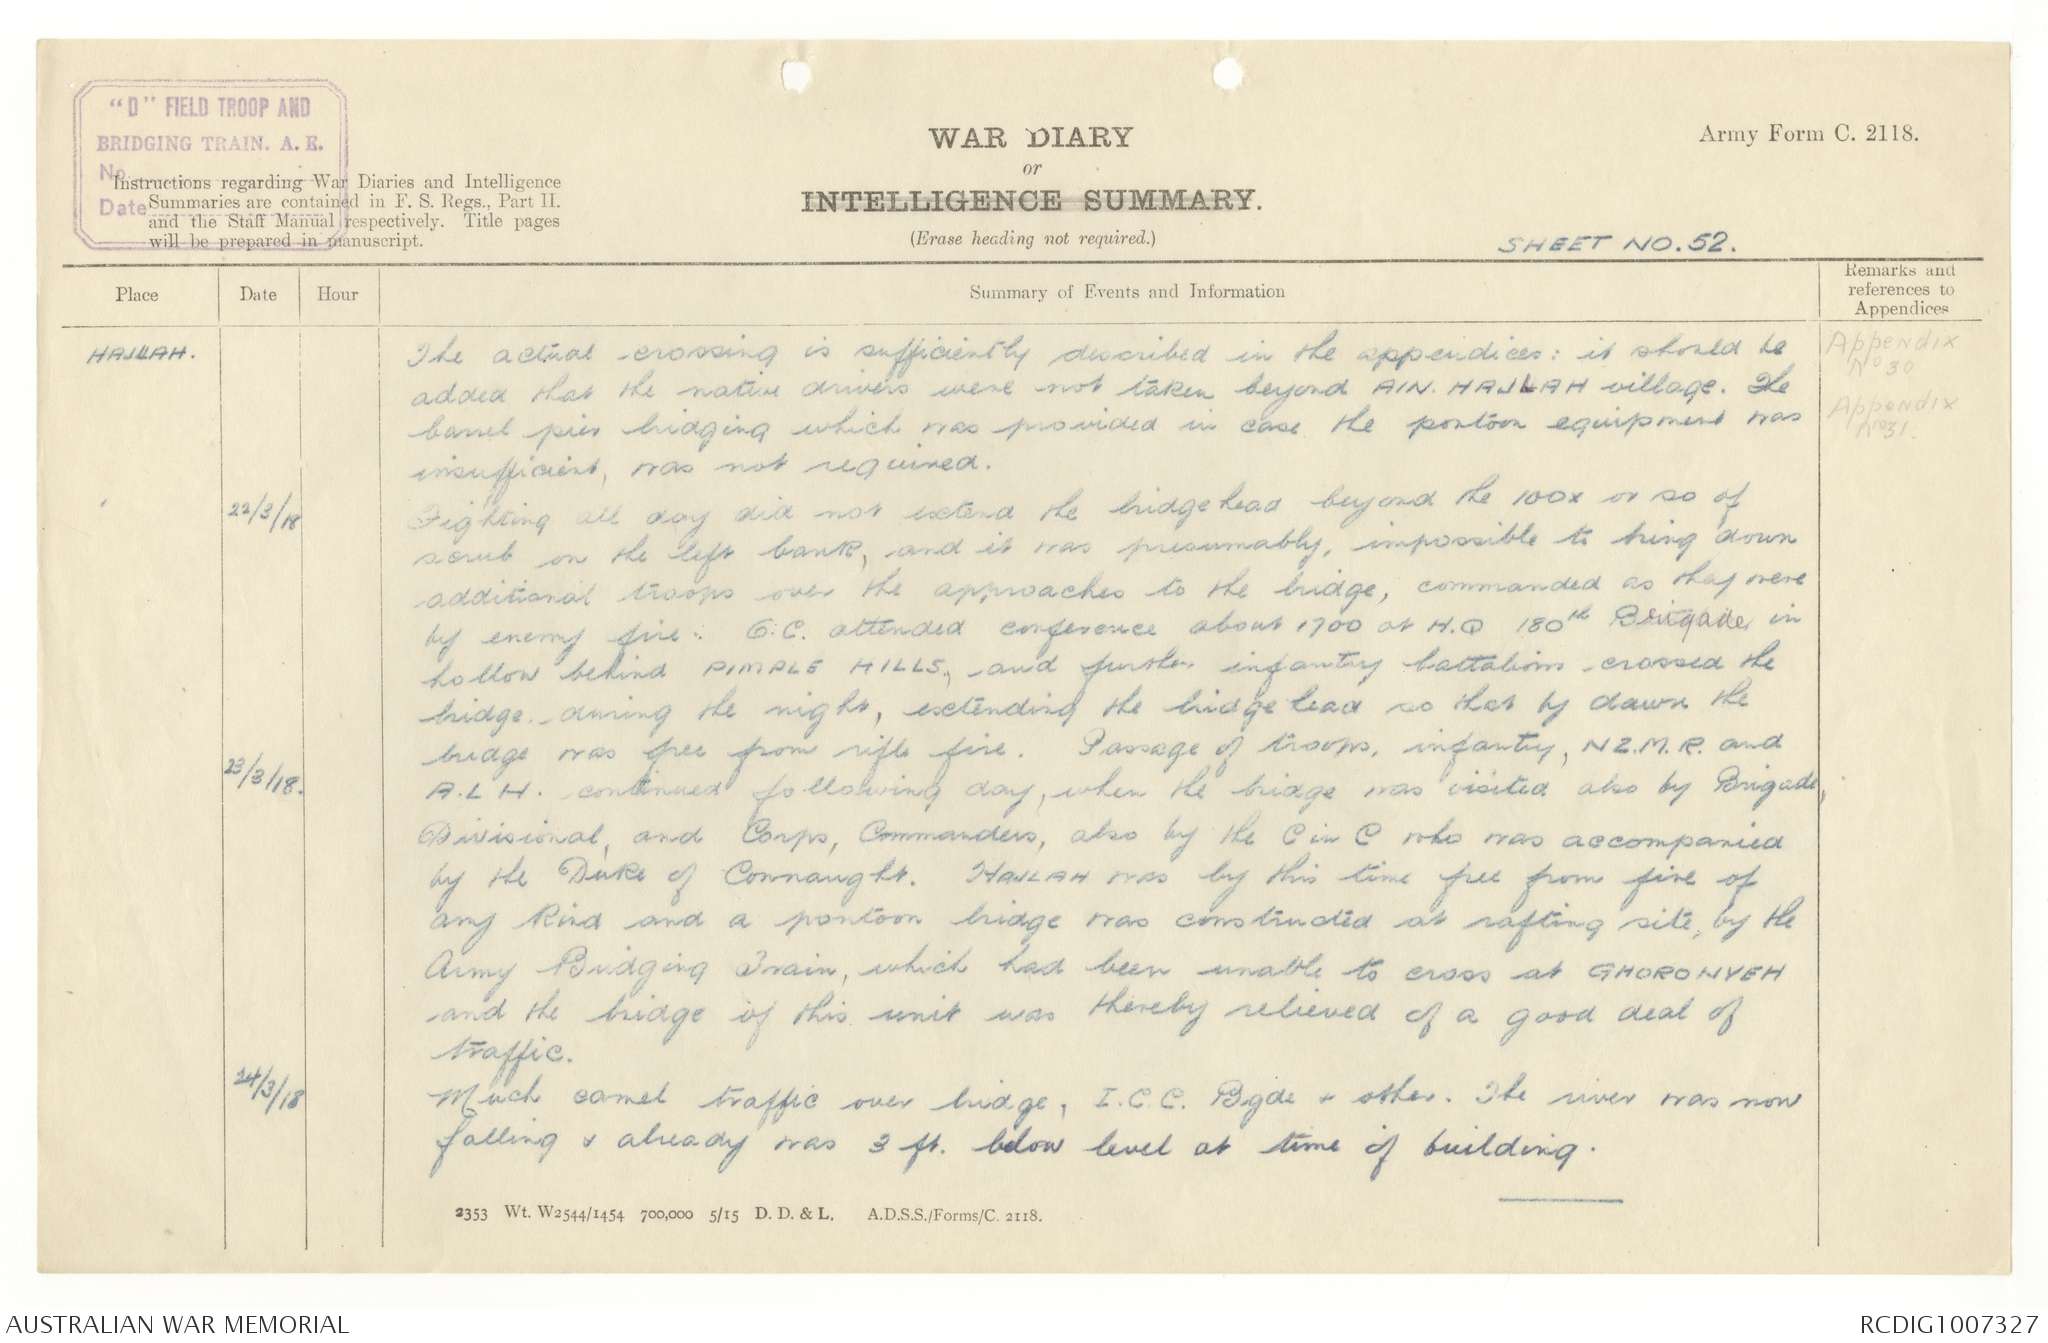 "D" FIELD TROOP AND
BRIDGING TRAIN. A. E.
No.
Date
Instructions regarding War Diaries and Intelligence
Summaries are contained in F. S. Regs., Part II.
and the Staff Manual respectively. Title pages
will be prepared in manuscript.
WAR DIARY
or
INTELLIGENCE SUMMARY.
(Erase heading not required.)
Army Form C. 2118.
SHEET NO. 52.
Place
Date
Hour
Summary of Events and Information
Remarks and
references to
Appendices
HAJLAH.
The actual crossing is sufficiently described in the appendices: it should be
Appendix
No 30
added that the native drivers were not taken beyond AIN. HAJLAH village. The
Appendix
No 31.
barrel pier bridging which was provided in case the pontoon equipment was
insufficient, was not required.
22/3/18
Fighting all day did not extend the bridgehead beyond the 100x or so of
scrub on the left bank, and it was presumably, impossible to bring down
additional troops over the approaches to the bridge, commanded as they were
by enemy fire. O.C. attended conference about 1700 at H.Q 180th Brigade, in
hollow behind PIMPLE HILLS., and further infantry battalions crossed the
bridge during the night, extending the bridgehead so that by dawn the
bridge was free from rifle fire. Passage of troops, infantry, N Z.M.R. and
23/3/18.
A.L H. continued following day, when the bridge was visited also by Brigade,
Divisional, and Corps, Commanders, also by the C in C who was accompanied
by the Duke of Connaught. HAJLAH was by this time free from fire of
any kind and a pontoon bridge was constructed at rafting site, by the
Army Bridging Train, which had been unable to cross at GHORONYEH
and the bridge of this unit was thereby relieved of a good deal of
traffic.
24/3/18
Much camel traffic over bridge, I.C.C. Bgde & other. The river was now
falling & already was 3 ft. below level at time of building.
2353 Wt. W2544/1454 700,000 5/15 D. D. & L. A.D.S.S./Forms/C. 2118.
AUSTRALIAN WAR MEMORIAL
RCDIG1007327